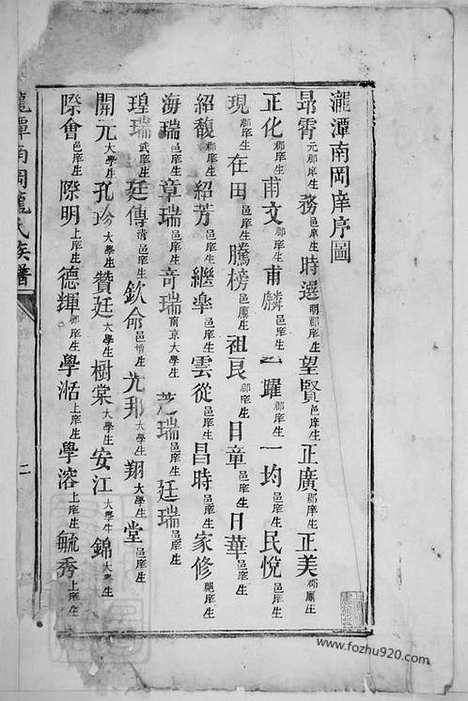 瀧潭南岡庠序圖
昂霄元郡庠生 務邑庠生 時選明郡庠生 望賢邑庠生 正廣郡庠生 正美郡廪生
正化郡庠生 甫文郡庠生 甫麟邑庠生 一躍郡庠生 一均 民悅邑庠生
現郡庠生 在田邑庠生 騰榜邑廪生 祖良郡庠生 日章邑庠生 日華邑庠生
紹馥郡庠生 紹芳邑庠生 繼臯郡庠生 雲從邑庠生 昌時邑庠生 家修庠生
海瑞邑庠生 章瑞邑庠生 奇瑞南京大學生 瑞邑庠生 廷瑞邑庠生
瑝瑞武庠生 廷傳清邑庠生 欽命邑增生 光邦大學生 翔大學生 堂邑庠生
開元大學生 孔珍大學生 贊廷大學生 樹棠大學生 安江大學生 錦大學生
際會邑庠生 際明上庠生 德輝郡庠生 學湉上庠生 學溶上庠生 毓秀上庠生
瀧潭南岡龐氏族譜
二
www.fozhu920.com